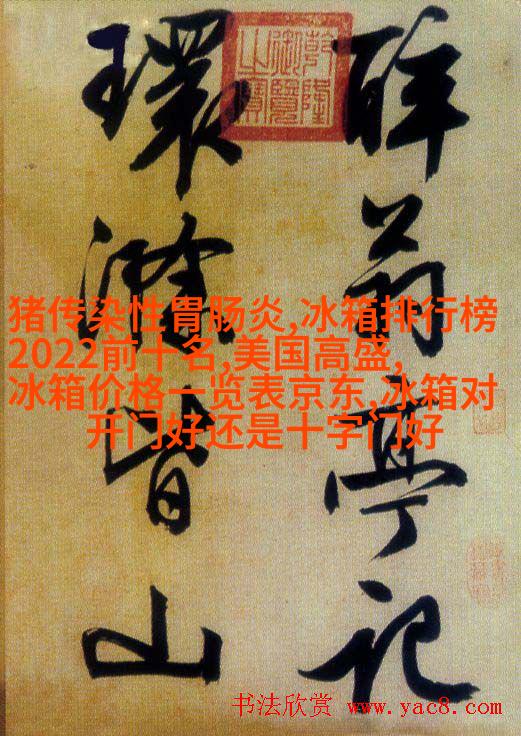 醉翁亭记
环滁皆山
乾隆御览之宝
猪传染性胃肠炎,冰箱排行榜
2022前十名,美国高盛,
冰箱价格一览表京东,冰箱对
开门好还是十字门好
书法欣赏 www.yac8.com